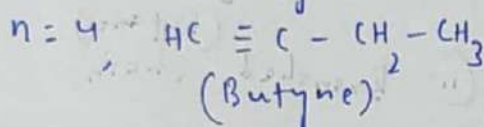 n = 4 HC ≡ C - CH₂ - CH₃
(Butyne)